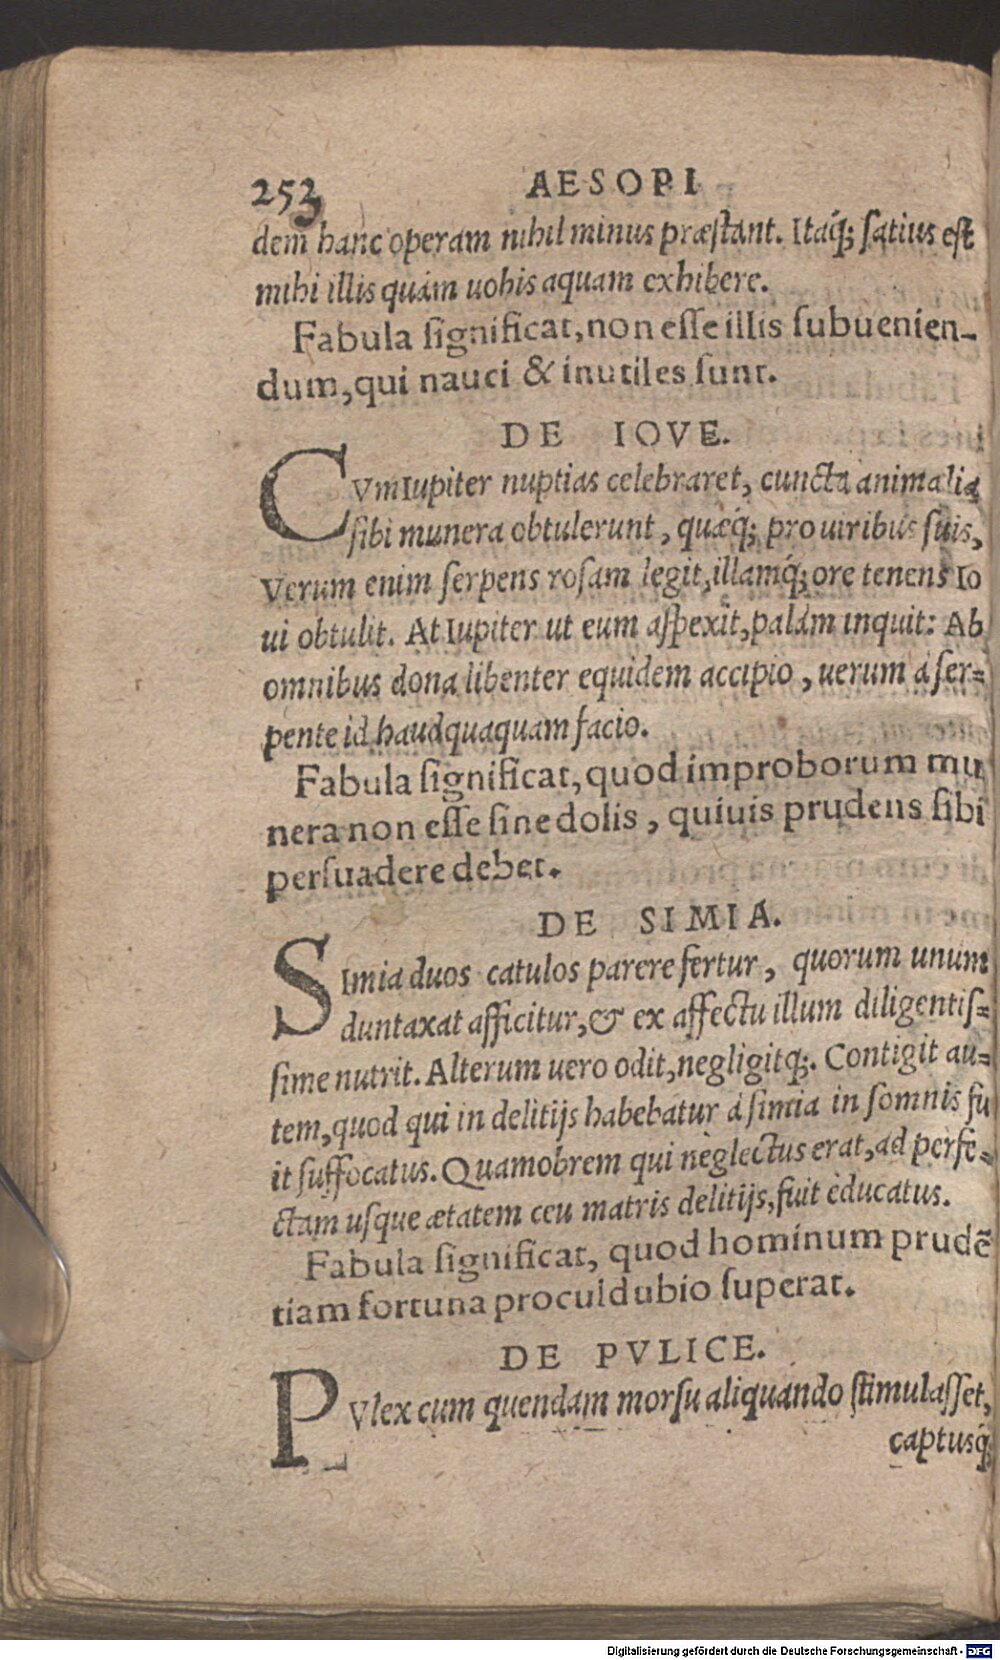 253 AESOPI
dem hanc operam nihil minus præstant. Itaq́; satius est
mihi illis quàm uobis aquam exhibere.
Fabula significat, non esse illis subuenien-
dum, qui nauci & inutiles sunt.
DE IOVE.
CVm Iupiter nuptias celebraret, cuncta animalia
sibi munera obtulerunt, quæq́; pro uiribus suis,
Verum enim serpens rosam legit, illamq́; ore tenens Io
ui obtulit. At Iupiter ut eum aspexit, palàm inquit: Ab
omnibus dona libenter equidem accipio, uerum à ser-
pente id haudquaquam facio.
Fabula significat, quod improborum mu
nera non esse sine dolis, quiuis prudens sibi
persuadere debet.
DE SIMIA.
SImia duos catulos parere fertur, quorum unum
duntaxat afficitur, & ex affectu illum diligentis-
sime nutrit. Alterum uero odit, negligitq;. Contigit au-
tem, quod qui in delitijs habebatur à simia in somnis fu
it suffocatus. Quamobrem qui neglectus erat, ad perfe-
ctam usque ætatem ceu matris delitijs, fuit educatus.
Fabula significat, quod hominum prudẽ
tiam fortuna procul dubio superat.
DE PVLICE.
PVlex cum quendam morsu aliquando stimulasset,
captusq́;
Digitalisierung gefördert durch die Deutsche Forschungsgemeinschaft - DFG